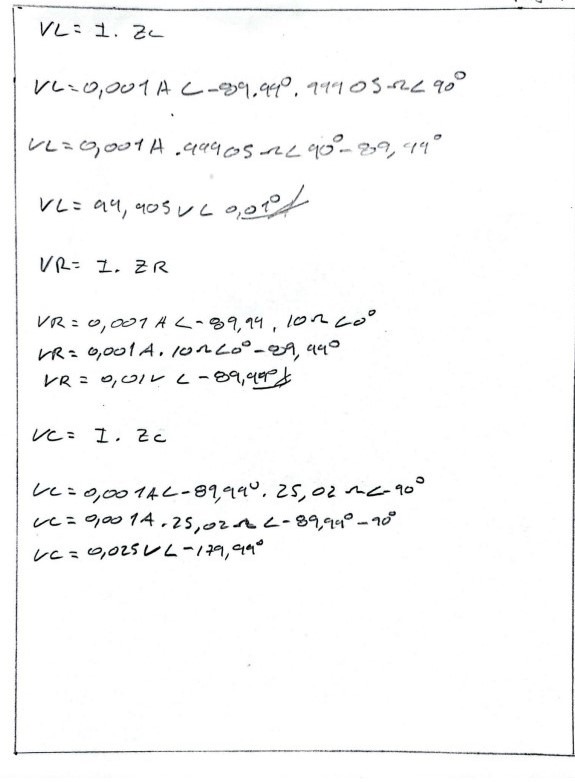 VL = I. ZL
VL = 0,001 A ∠-89,99°. 99905 Ω∠ 90°
VL = 0,001 A . 99905 Ω∠ 90° - 89,99°
VL = 99,905 V∠ 0,01°
VR = I. ZR
VR = 0,001 A ∠-89,99, 10 Ω ∠0°
VR = 0,001 A. 10 Ω∠0° - 89,99°
VR = 0,01 V ∠ -89,99°
VC = I. ZC
VC = 0,001 A∠-89,99°. 25,02 Ω∠-90°
VC = 0,001 A. 25,02 Ω ∠-89,99° - 90°
VC = 0,025 V∠ -179,99°